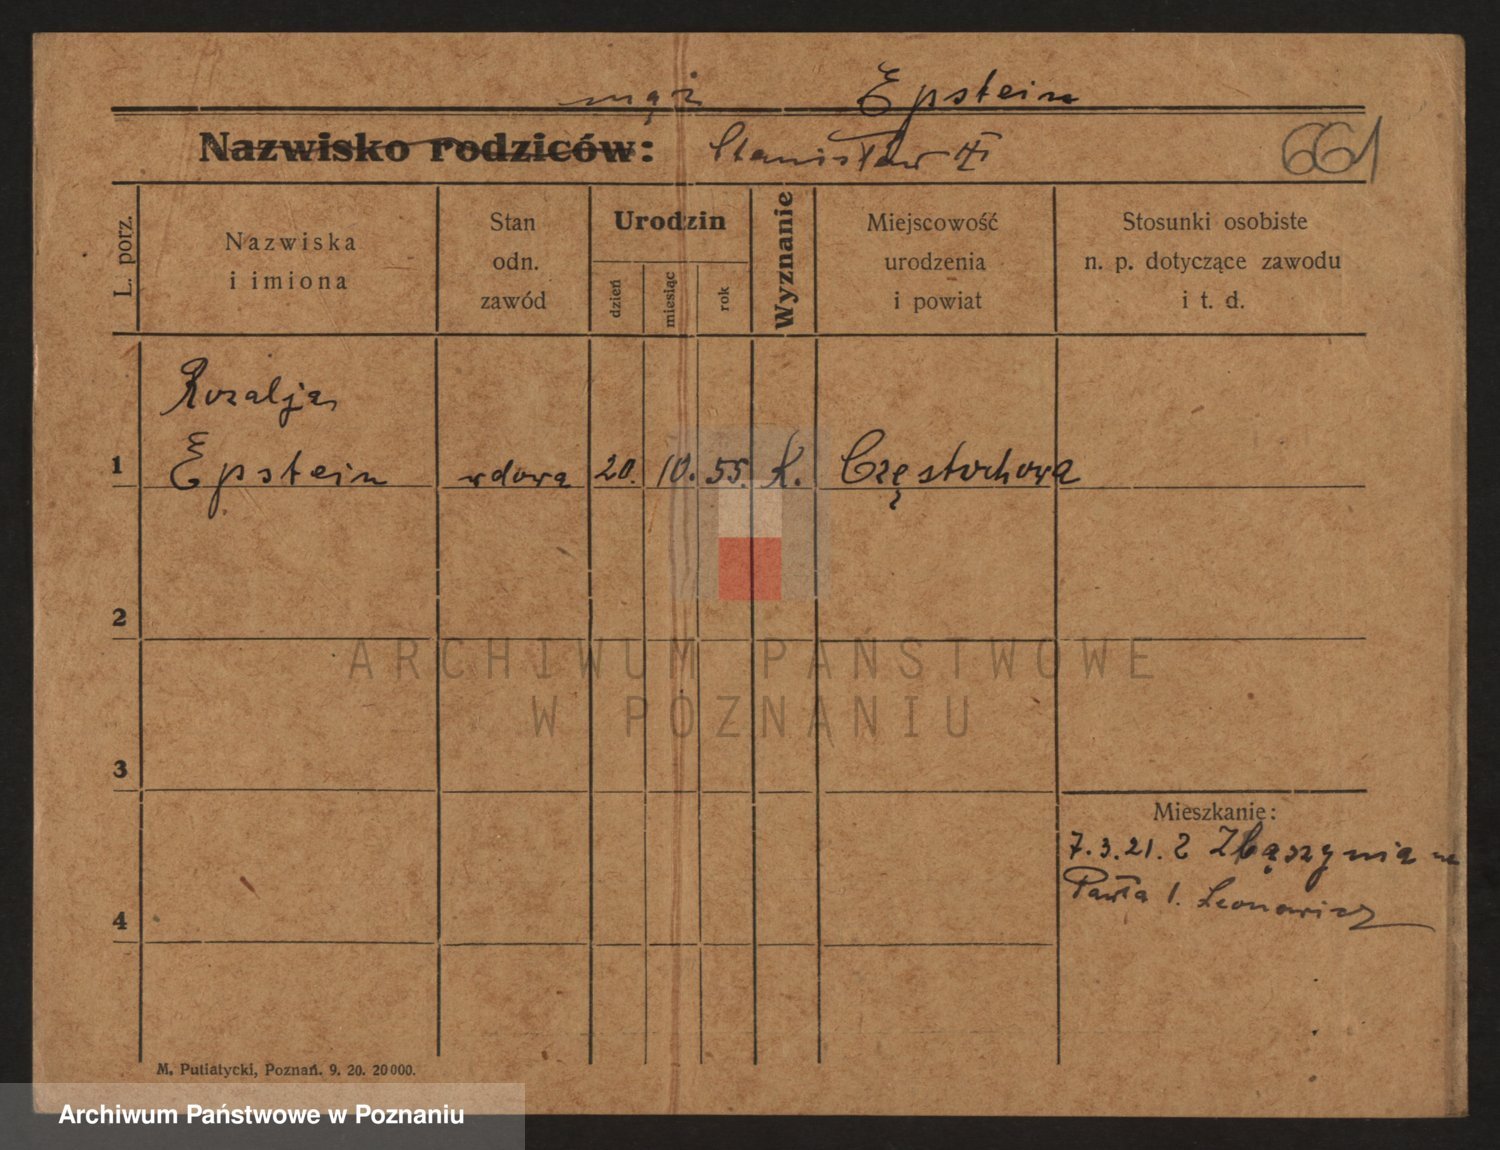 mąż Epstein
Nazwisko rodziców: Stanisław
661
L. porz.
Nazwiska
i imiona
Stan
odn.
zawód
Urodzin
dzień
miesiąc
rok
Wyznanie
Miejscowość
urodzenia
i powiat
Stosunki osobiste
n. p. dotyczące zawodu
i t. d.
Rozalja
1 Epstein wdowa 20. 10. 55. K. Częstochowa
2
ARCHIWUM PAŃSTWOWE
W POZNANIU
3
Mieszkanie:
7.3.21. Z Zbąszynia na
Pawła 1. Leonowicz
4
M. Putiatycki, Poznań. 9. 20. 20000.
Archiwum Państwowe w Poznaniu